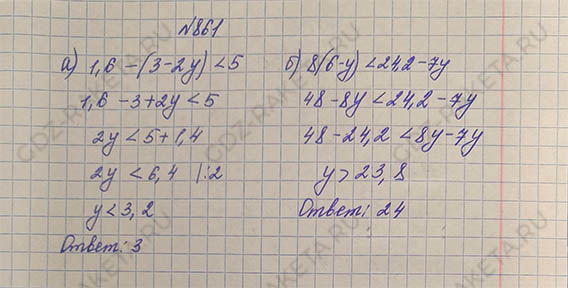 №861
а) 1,6 - (3-2y) < 5
1,6 - 3 + 2y < 5
2y < 5 + 1,4
2y < 6,4 |:2
y < 3,2
Ответ: 3
б) 8(6-y) < 24,2 - 7y
48 - 8y < 24,2 - 7y
48 - 24,2 < 8y - 7y
y > 23,8
Ответ: 24
GDZ-RAKETA.RU
GDZ-RAKETA.RU
GDZ-RAKETA.RU